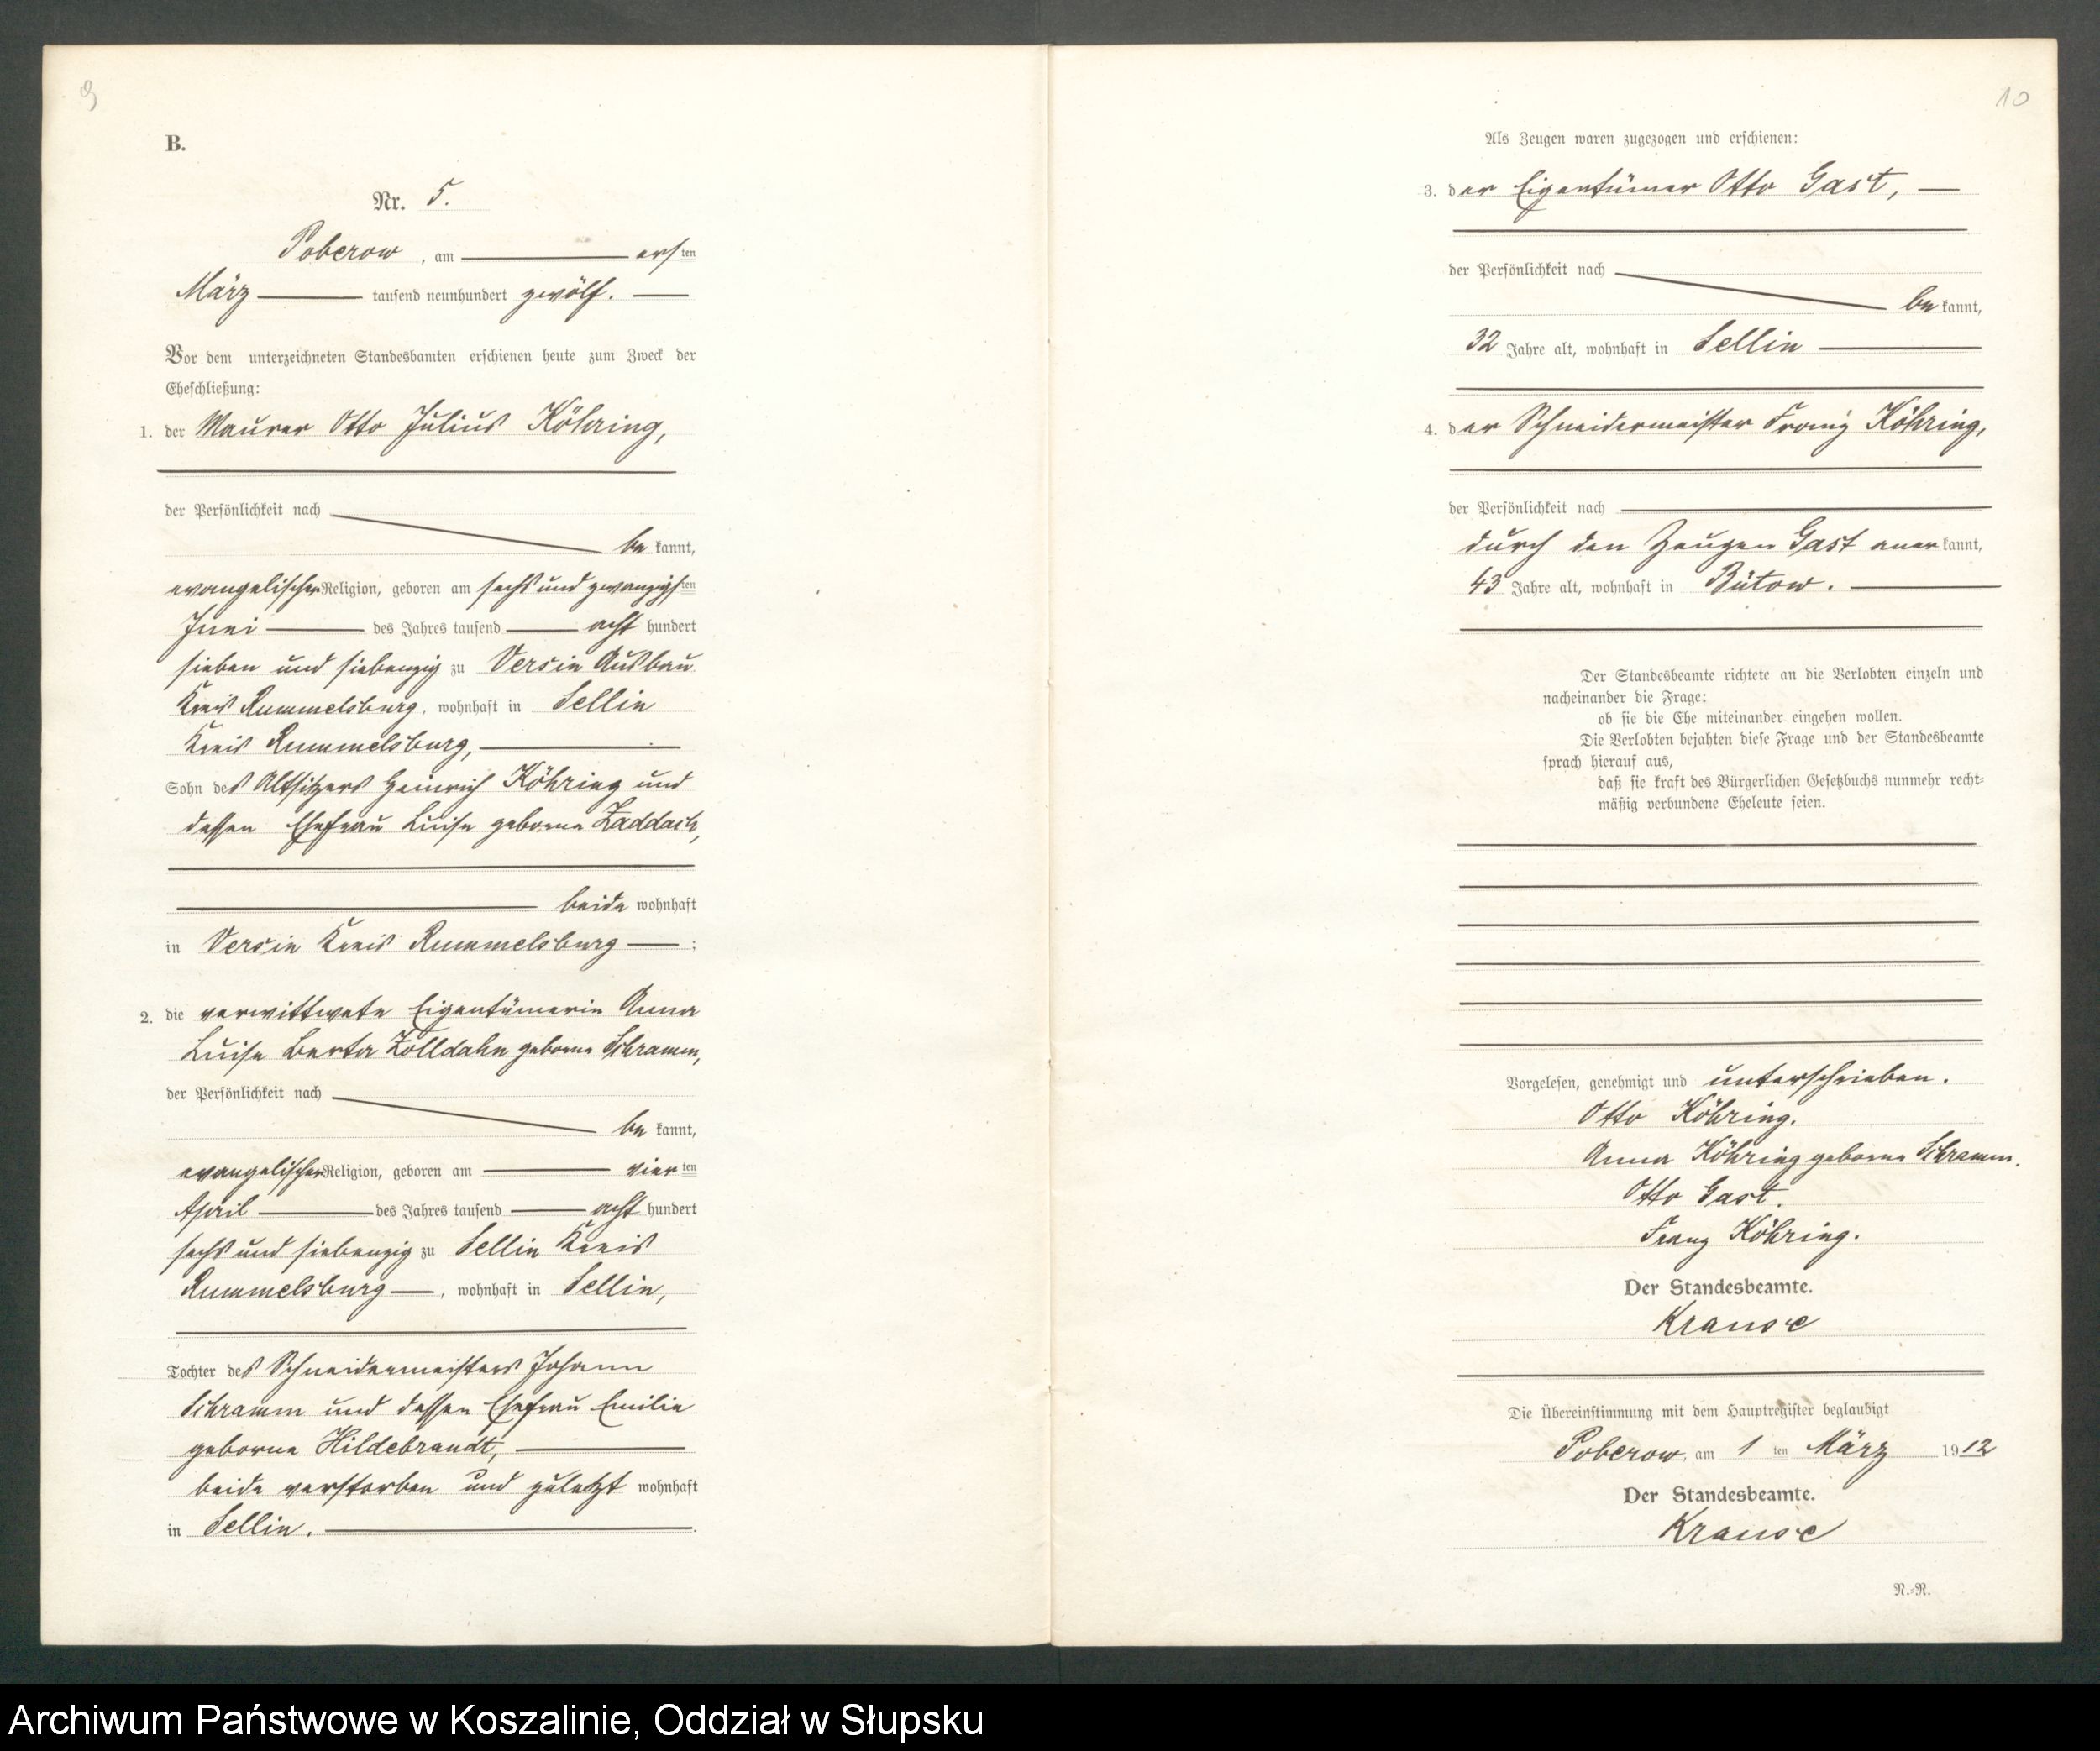 9
B.
Nr. 5.
Poberow, am ersten
März tausend neunhundert zwölf.
Vor dem unterzeichneten Standesbamten erschienen heute zum Zweck der
Eheschließung:
1. der Maurer Otto Julius Köhring,
der Persönlichkeit nach
be kannt,
evangelischer Religion, geboren am sechs und zwanzigsten
Juni des Jahres tausend acht hundert
sieben und siebenzig zu Versin Ausbau
Kreis Rummelsburg, wohnhaft in Sellin
Kreis Rummelsburg,
Sohn des Altsitzers Heinrich Köhring und
dessen Ehefrau Luise geborne Zaddach,
beide wohnhaft
in Versin Kreis Rummelsburg ;
2. die verwittwete Eigentümerin Anna
Luise Berta Zolldahn geborne Schramm,
der Persönlichkeit nach
be kannt,
evangelischer Religion, geboren am vierten
April des Jahres tausend acht hundert
sechs und siebenzig zu Sellin Kreis
Rummelsburg, wohnhaft in Sellin,
Tochter des Schneidermeisters Johann
Schramm und dessen Ehefrau Emilie
geborne Hildebrandt,
beide verstorben und zuletzt wohnhaft
in Sellin.
10
Als Zeugen waren zugezogen und erschienen:
3. der Eigentümer Otto Gast,
der Persönlichkeit nach
be kannt,
32 Jahre alt, wohnhaft in Sellin
4. der Schneidermeister Franz Köhring,
der Persönlichkeit nach
durch den Zeugen Gast anerkannt,
43 Jahre alt, wohnhaft in Bütow.
Der Standesbeamte richtete an die Verlobten einzeln und
nacheinander die Frage:
ob sie die Ehe miteinander eingehen wollen.
Die Verlobten bejahten diese Frage und der Standesbeamte
sprach hierauf aus,
daß sie kraft des Bürgerlichen Gesetzbuchs nunmehr recht-
mäßig verbundene Eheleute seien.
Vorgelesen, genehmigt und unterschrieben.
Otto Köhring.
Anna Köhring geborne Schramm.
Otto Gast.
Franz Köhring.
Der Standesbeamte.
Krause
Die Übereinstimmung mit dem Hauptregister beglaubigt
Poberow, am 1 ten März 1912
Der Standesbeamte.
Krause
N.-R.
Archiwum Państwowe w Koszalinie, Oddział w Słupsku